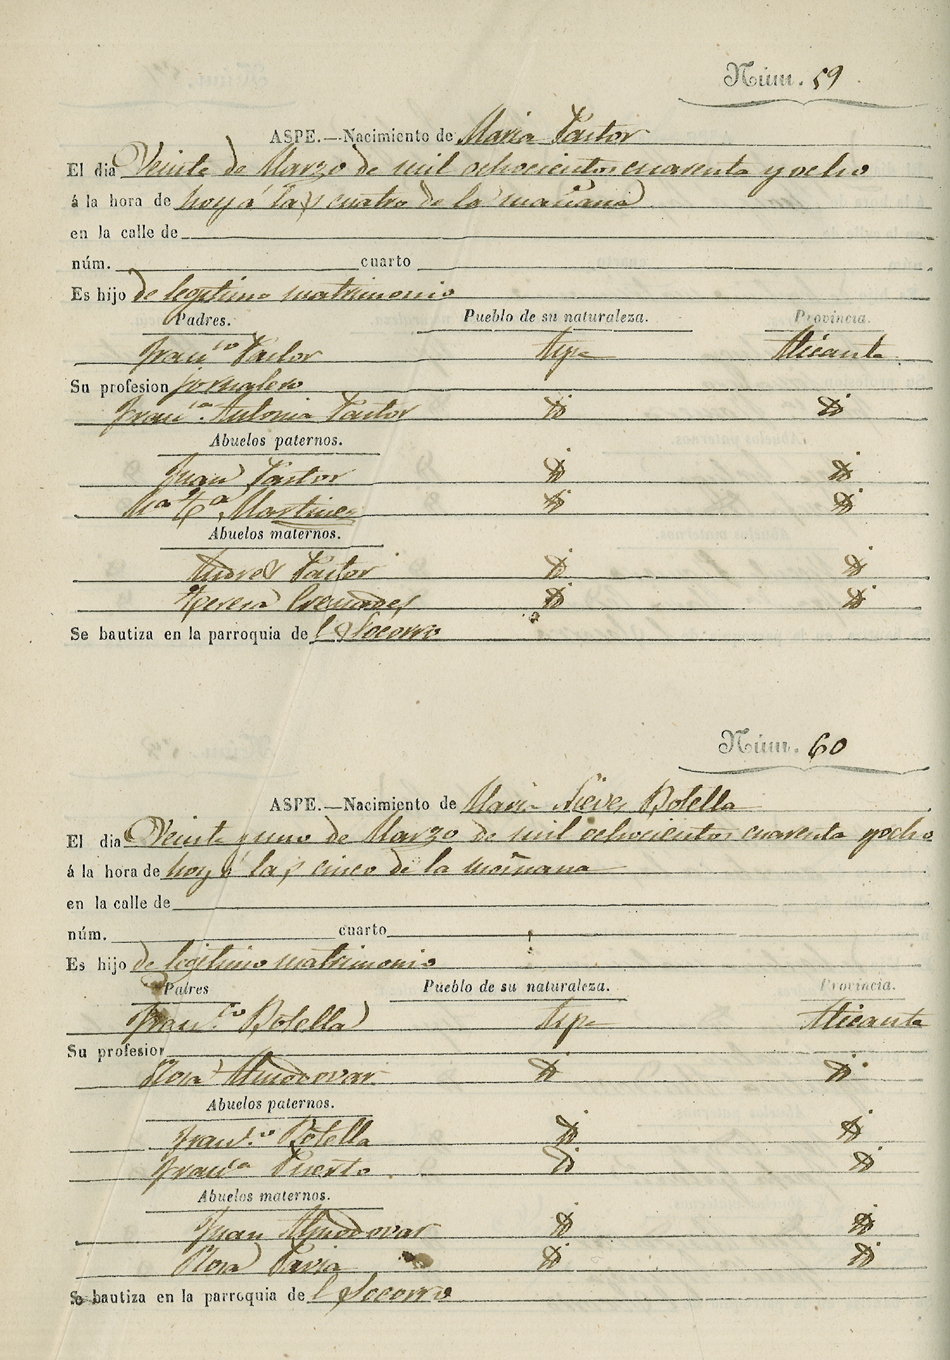 Núm. 59
ASPE.—Nacimiento de Maria Pastor
El dia Veinte de Marzo de mil ochocientos cuarenta y ocho
á la hora de hoy á las cuatro de la mañana
en la calle de
núm. cuarto
Es hijo de legitimo matrimonio
Padres. Pueblo de su naturaleza. Provincia.
Fran.co Pastor Aspe Alicante
Su profesion jornalero
Fran.ca Antonia Pastor Yd. Yd.
Abuelos paternos.
Juan Pastor Yd. Yd.
Martinez Yd. Yd.
Abuelos maternos.
Andres Pastor Yd. Yd.
Teresa Cremades Yd. Yd.
Se bautiza en la parroquia de l Socorro
Núm. 60
ASPE.—Nacimiento de Maria Nieves Botella
El dia Veinte y uno de Marzo de mil ochocientos cuarenta y ocho
á la hora de hoy á las cinco de la mañana
en la calle de
núm. cuarto
Es hijo de legitimo matrimonio
Padres Pueblo de su naturaleza. Provincia.
Fran.co Botella Aspe Alicante
Su profesion
Rosa Almodovar Yd. Yd.
Abuelos paternos.
Fran.co Botella Yd. Yd.
Fran.ca Puerto Yd. Yd.
Abuelos maternos.
Juan Almodovar Yd. Yd.
Rosa Pavia Yd. Yd.
Se bautiza en la parroquia de l Socorro